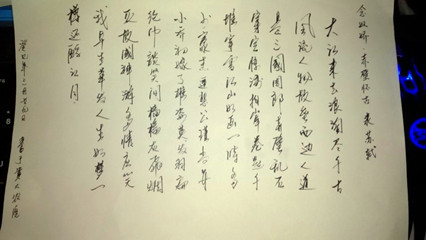 念奴娇 赤壁怀古 苏轼
大江东去浪淘尽千古
风流人物故垒西边人道
是三国周郎赤壁乱石
穿空惊涛拍岸卷起千
堆雪江山如画一时多
少豪杰遥想公瑾当年
小乔初嫁了雄姿英发羽扇
纶巾谈笑间樯橹灰飞烟
灭故国神游多情应笑
我早生华发人生如梦一
樽还酹江月